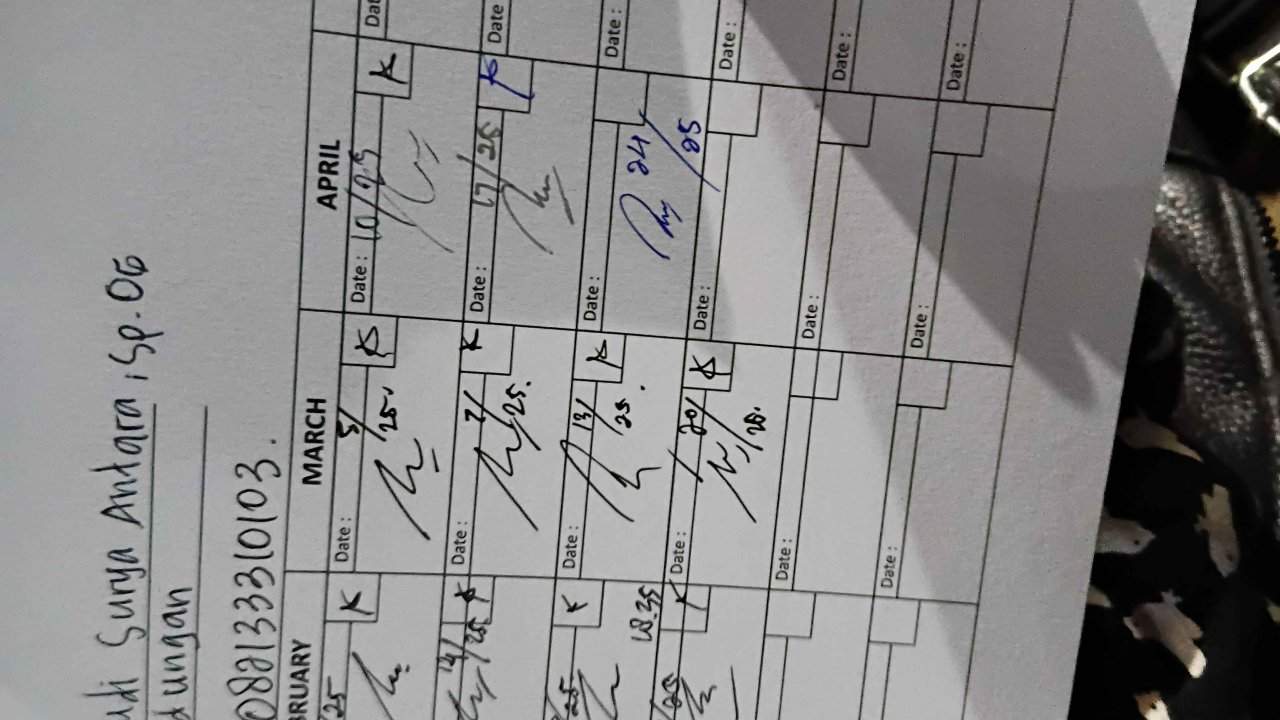 udi Surya Antara, Sp.OG
dungan
082133310103.
BRUARY MARCH APRIL
25 K Date: 5/25. K Date: 10/25 K Date
14/25 K Date: 7/25. K Date: 17/25 K Date
/25 K Date: 13/25. K Date: 24/25 Date:
18.35
/25 K Date: 20/25. K Date: Date:
Date: Date: Date:
Date: Date: Date: